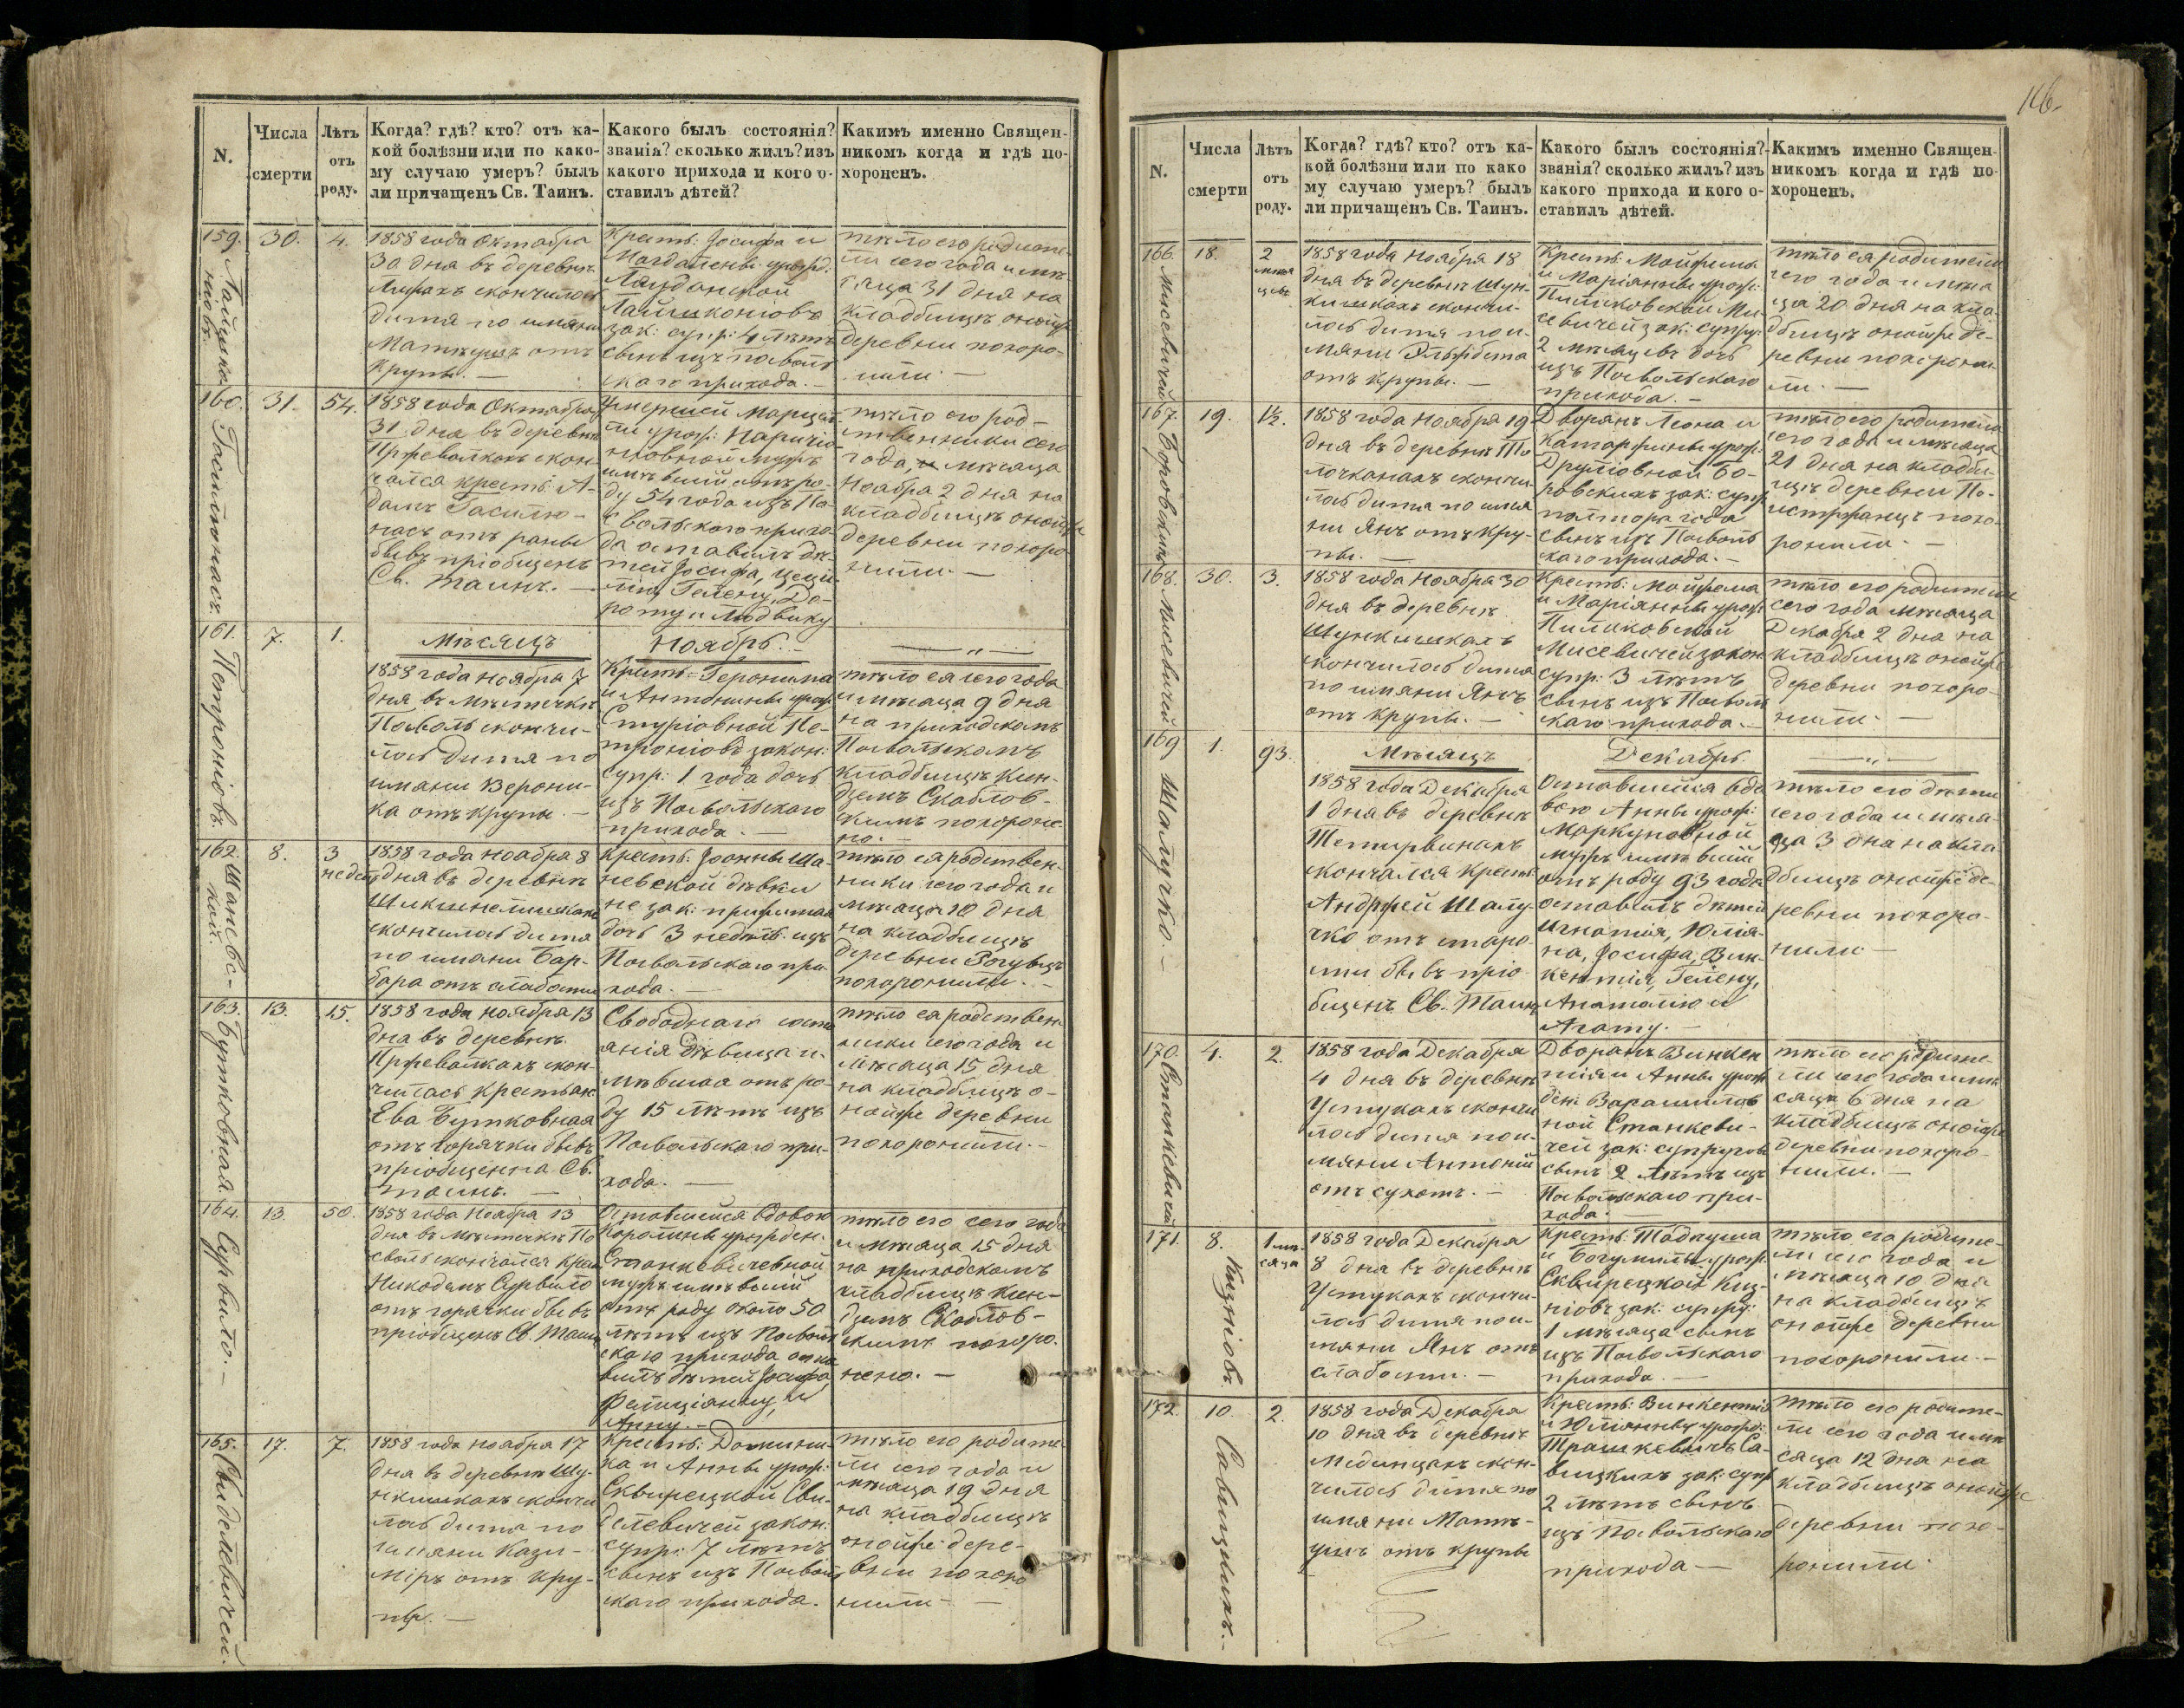 116.
N.
Числа
смерти
Лѣтъ
отъ
роду.
Когда? гдѣ? кто? отъ ка-
кой болѣзни или по како-
му случаю умеръ? былъ
ли причащенъ Св. Таинъ.
Какого былъ состоянія?
званія? сколько жилъ? изъ
какого прихода и кого о-
ставилъ дѣтей?
Какимъ именно Священ-
никомъ когда и гдѣ по-
хороненъ.
159.
30.
4.
1858 года Октября
30 дня въ деревнѣ
скончилось
дитя по имяни
отъ
Крупы. —
Крест: Іосифа и
Магдалены урожд.
зак: супр: 4 лѣтъ
сынъ изъ Посволь
скаго прихода. —
тѣло его родите-
ли сего года и мѣ
сяца 31 дня на
кладбищѣ онойже
деревни похоро-
нили. —
160.
Гасилюнасъ.
31.
54.
1858 года Октября
31 дня въ деревнѣ
скон-
чался крест: А-
дамъ Гасилю-
насъ отъ раны
бывъ пріобщенъ
Св. Таинъ. —
Умершей
урож:
мужъ
имѣвшій отъ ро-
ду 54 года изъ По-
свольскаго прихо-
да оставилъ дѣ-
тей Іосифа,
Гелену, До-
роту и Людвику
тѣло его род-
ственники сего
года, и мѣсяца
Ноября 2 дня на
кладбищѣ онойже
деревни похоро
нили. —
161.
Петроніовъ.
7.
1.
Мѣсяцъ
Ноябрь. —
— " —
1858 года ноября 7
дня въ мѣстечкѣ
Посволь скончи-
лось дитя по
имяни Верони-
ка отъ крупы. —
Крест: Геронима
и Антонины урож:
Петроніовъ закон:
супр: 1 года дочь
изъ Посвольскаго
прихода. —
тѣло ея сего года
и мѣсяца 9 дня
на приходскомъ
Посвольскомъ
кладбищѣ Ксен-
дземъ Скаблов-
скимъ похороне-
но.
162.
Шаневс-
кой.
8.
3
недѣл
1858 года ноября 8
дня въ деревнѣ
скончилось дитя
по имяни Бар-
бара отъ слабости
Крест: Іоанны Ша-
невской дѣвки
не зак: прижитая
дочь 3 недѣль изъ
Посвольскаго при-
хода. —
тѣло ея родствен-
ники сего года и
мѣсяца 10 дня
на кладбищѣ
деревни
похоронили. —
163.
Бутковная.
13.
15.
1858 года ноября 13
дня въ деревнѣ
скон-
чилась крестьян
Ева Бутковная
отъ горячки бывъ
пріобщенна Св.
Таинъ. —
Свободнаго состо
янія дѣвица и-
мѣвшая отъ ро-
ду 15 лѣтъ изъ
Посвольскаго при-
хода. —
тѣло ея родствен
ники сего года и
мѣсяца 15 дня
на кладбищѣ о-
нойже деревни
похоронили. —
164.
Сурвило. —
13.
50.
1858 года Ноября 13
дня въ мѣстечкѣ По
сволѣ скончался крес
Никодемъ Сурвило
отъ горячки бывъ
пріобщенъ Св. Таинъ
Оставшейся вдовою
Каролины урожден:
Станкевичевной
мужъ имѣвшій
отъ роду около 50
лѣтъ изъ Посволь
скаго прихода оста
вилъ дѣтей Іосифа
Фелиціанну, и
Анну. —
тѣло его сего года
и мѣсяца 15 дня
на приходскомъ
кладбищѣ Ксен-
дземъ Скаблов-
скимъ похоро-
нено. —
165.
Свиделевичей.
17.
7.
1858 года ноября 17
дня въ деревнѣ Шу-
нкишкахъ скончи
лось дитя по
имяни Кази-
міръ отъ кру-
пы. —
Крест: Домини-
ка и Анны урож:
Сквирецкой Сви-
делевичей закон:
супр: 7 лѣтъ
сынъ изъ Посволь
скаго прихода.
тѣло его родите
ли сего года и
мѣсяца 19 дня
на кладбищѣ
онойже дере-
вни похоро
нили —
N.
Числа
смерти
Лѣтъ
отъ
роду.
Когда? гдѣ? кто? отъ ка-
кой болѣзни или по како
му случаю умеръ? былъ
ли причащенъ Св. Таинъ.
Какого былъ состоянія?
званія? сколько жилъ? изъ
какого прихода и кого о-
ставилъ дѣтей.
Какимъ именно Священ-
никомъ когда и гдѣ по-
хороненъ.
166.
Мисевичей
18.
2
мѣся
цевъ
1858 года Ноября 18
дня въ деревнѣ Шун-
кишкахъ скончи-
лось дитя по и-
мяни Эльжбета
отъ крупы. —
Крест: Мойжеша
и Маріянны урож:
Пиликовской Ми-
севичей зак: супр:
2 мѣсяцевъ дочь
изъ Посвольскаго
прихода. —
тѣло ея родители
сего года и мѣся
ца 20 дня на кла-
дбищѣ онойже де-
ревни похорони-
ли. —
167.
Боровскихъ
19.
1½.
1858 года Ноября 19
дня въ деревнѣ
скончи
лось дитя по имя
ни Янъ отъ кру-
пы. —
Дворянъ Леона и
Катаржины урож:
Бо-
ровскихъ зак: супр:
полтора года
сынъ изъ Посволь
скаго прихода. —
тѣло его родители
сего года и мѣсяца
21 дня на кладби-
щѣ деревни По-
похо-
ронили. —
168.
Мисевичей
30.
3.
1858 года Ноября 30
дня въ деревнѣ
Шункишкахъ
скончилось дитя
по имяни Янъ
отъ крупы. —
Крест: Мойжеша
и Маріянны урож:
Пиликовской
Мисевичей закон
супр: 3 лѣтъ
сынъ изъ Посволь
скаго прихода. —
тѣло его родители
сего года мѣсяца
Декабря 2 дня на
кладбищѣ онойже
деревни похоро-
нили. —
169
Шалучко. —
1.
93.
Мѣсяцъ
Декабрь.
— " —
1858 года Декабря
1 дня въ деревнѣ
скончался крест:
Андржей Шалу-
чко отъ старо-
сти бывъ пріо
бщенъ Св. Таинъ
Оставшейся вдо
вою Анны урож:
Маркуновной
мужъ имѣвшій
отъ роду 93 года
оставилъ дѣтей
Игнатія, Юлія-
на, Іосифа, Вин-
кентія, Гелену,
Анатолію и
Агату. —
тѣло его дѣти
сего года и мѣся-
ца 3 дня на кла
дбищѣ онойже де-
ревни похоро-
нили —
170.
Станкевичей
4.
2.
1858 года Декабря
4 дня въ деревнѣ
Устукахъ скончи
лось дитя по и-
мяни Антоній
отъ сухотъ. —
Дворянъ Винкен
тія и Анны урож
ден:
ной Станкеви-
чей зак: супруговъ
сынъ 2 лѣтъ изъ
Посвольскаго при-
хода. —
тѣло его родите-
ли сего года и мѣ
сяца 6 дня на
кладбищѣ онойже
деревни похоро-
нили. —
171.
8.
1 мѣ-
сяца
1858 года Декабря
8 дня въ деревнѣ
Устукахъ скончи-
лось дитя по и-
мяни Янъ отъ
слабости. —
Крест: Тадеуша
и Богумилы урож:
Сквирецкой
зак: супру:
1 мѣсяца сынъ
изъ Посвольскаго
прихода. —
тѣло его родите-
ли сего года и
мѣсяца 10 дня
на кладбищѣ
онойже деревни
похоронили. —
172.
Савицкихъ. —
10.
2.
1858 года Декабря
10 дня въ деревнѣ
скон-
чилось дитя по
имяни
отъ крупы
Крест: Винкентія
и Юліянны урожд:
Са-
вицкихъ зак: супр
2 лѣтъ сынъ
изъ Посвольскаго
прихода —
тѣло его родите-
ли сего года и мѣ
сяца 12 дня на
кладбищѣ онойже
деревни похо-
ронили.